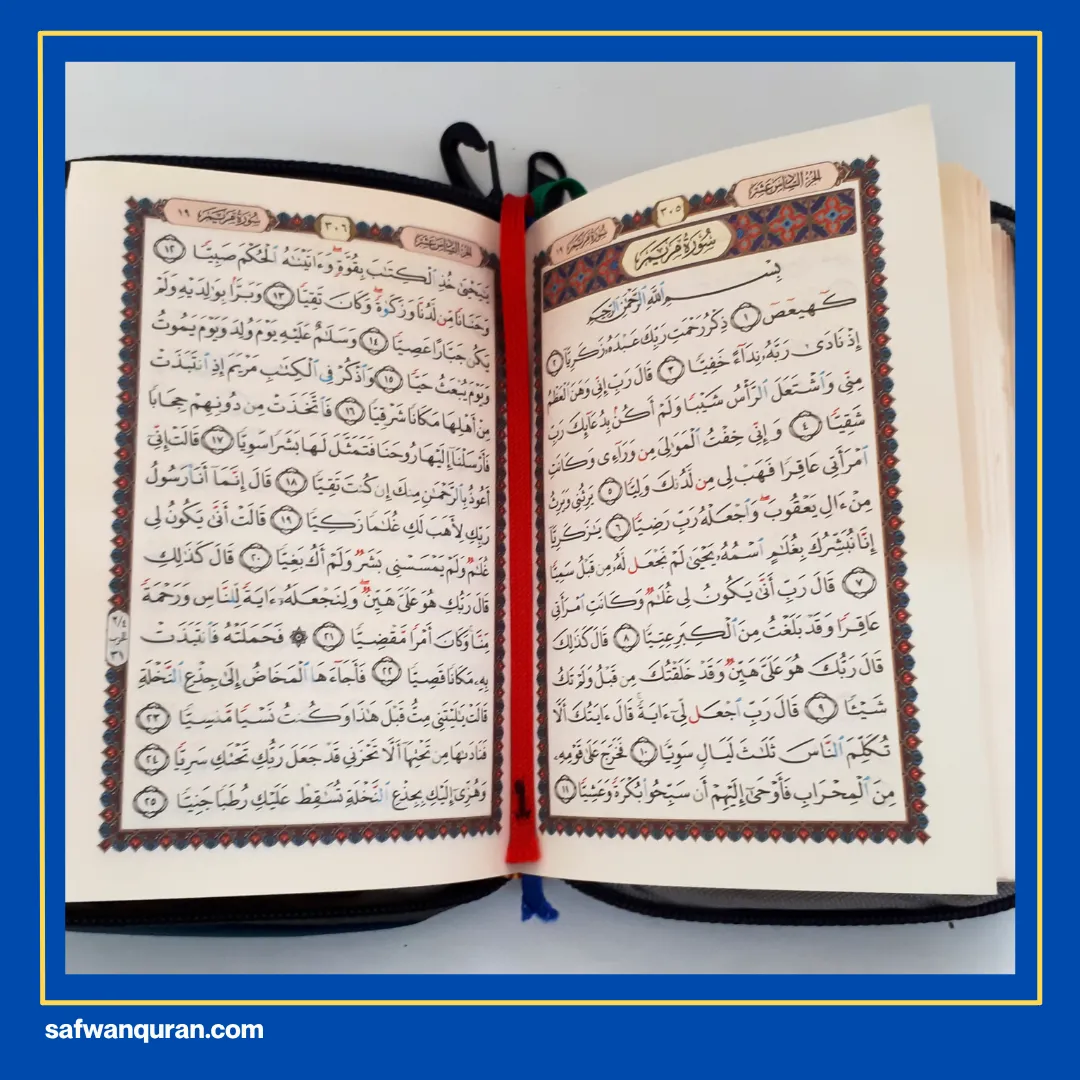 الجزء السادس عشر
٣٠٥
سورة مريم ١٩
سُورَةُ مَرْيَمَ
بِسْمِ ٱللَّهِ ٱلرَّحْمَٰنِ ٱلرَّحِيمِ
كٓهيعٓصٓ ١ ذِكْرُ رَحْمَتِ رَبِّكَ عَبْدَهُۥ زَكَرِيَّآ ٢
إِذْ نَادَىٰ رَبَّهُۥ نِدَآءً خَفِيًّا ٣ قَالَ رَبِّ إِنِّى وَهَنَ ٱلْعَظْمُ
مِنِّى وَٱشْتَعَلَ ٱلرَّأْسُ شَيْبًا وَلَمْ أَكُنۢ بِدُعَآئِكَ رَبِّ
شَقِيًّا ٤ وَإِنِّى خِفْتُ ٱلْمَوَٰلِىَ مِن وَرَآءِى وَكَانَتِ
ٱمْرَأَتِى عَاقِرًا فَهَبْ لِى مِن لَّدُنكَ وَلِيًّا ٥ يَرِثُنِى وَيَرِثُ
مِنْ ءَالِ يَعْقُوبَ ۖ وَٱجْعَلْهُ رَبِّ رَضِيًّا ٦ يَٰزَكَرِيَّآ
إِنَّا نُبَشِّرُكَ بِغُلَٰمٍ ٱسْمُهُۥ يَحْيَىٰ لَمْ نَجْعَل لَّهُۥ مِن قَبْلُ سَمِيًّا
٧ قَالَ رَبِّ أَنَّىٰ يَكُونُ لِى غُلَٰمٌ وَكَانَتِ ٱمْرَأَتِى
عَاقِرًا وَقَدْ بَلَغْتُ مِنَ ٱلْكِبَرِ عِتِيًّا ٨ قَالَ كَذَٰلِكَ
قَالَ رَبُّكَ هُوَ عَلَىَّ هَيِّنٌ وَقَدْ خَلَقْتُكَ مِن قَبْلُ وَلَمْ تَكُ
شَيْـًٔا ٩ قَالَ رَبِّ ٱجْعَل لِّىٓ ءَايَةً ۚ قَالَ ءَايَتُكَ أَلَّا
تُكَلِّمَ ٱلنَّاسَ ثَلَٰثَ لَيَالٍ سَوِيًّا ١٠ فَخَرَجَ عَلَىٰ قَوْمِهِۦ
مِنَ ٱلْمِحْرَابِ فَأَوْحَىٰٓ إِلَيْهِمْ أَن سَبِّحُوا۟ بُكْرَةً وَعَشِيًّا ١١
الجزء السادس عشر
٣٠٦
سورة مريم ١٩
يَٰيَحْيَىٰ خُذِ ٱلْكِتَٰبَ بِقُوَّةٍ ۖ وَءَاتَيْنَٰهُ ٱلْحُكْمَ صَبِيًّا ١٢
وَحَنَانًا مِّن لَّدُنَّا وَزَكَوٰةً ۖ وَكَانَ تَقِيًّا ١٣ وَبَرًّۢا بِوَٰلِدَيْهِ وَلَمْ
يَكُن جَبَّارًا عَصِيًّا ١٤ وَسَلَٰمٌ عَلَيْهِ يَوْمَ وُلِدَ وَيَوْمَ يَمُوتُ
وَيَوْمَ يُبْعَثُ حَيًّا ١٥ وَٱذْكُرْ فِى ٱلْكِتَٰبِ مَرْيَمَ إِذِ ٱنتَبَذَتْ
مِنْ أَهْلِهَا مَكَانًا شَرْقِيًّا ١٦ فَٱتَّخَذَتْ مِن دُونِهِمْ حِجَابًا
فَأَرْسَلْنَآ إِلَيْهَا رُوحَنَا فَتَمَثَّلَ لَهَا بَشَرًا سَوِيًّا ١٧ قَالَتْ إِنِّىٓ
أَعُوذُ بِٱلرَّحْمَٰنِ مِنكَ إِن كُنتَ تَقِيًّا ١٨ قَالَ إِنَّمَآ أَنَا۠ رَسُولُ
رَبِّكِ لِأَهَبَ لَكِ غُلَٰمًا زَكِيًّا ١٩ قَالَتْ أَنَّىٰ يَكُونُ لِى
غُلَٰمٌ وَلَمْ يَمْسَسْنِى بَشَرٌ وَلَمْ أَكُ بَغِيًّا ٢٠ قَالَ كَذَٰلِكِ
قَالَ رَبُّكِ هُوَ عَلَىَّ هَيِّنٌ ۖ وَلِنَجْعَلَهُۥٓ ءَايَةً لِّلنَّاسِ وَرَحْمَةً
مِّنَّا ۚ وَكَانَ أَمْرًا مَّقْضِيًّا ٢١ ۞ فَحَمَلَتْهُ فَٱنتَبَذَتْ
بِهِۦ مَكَانًا قَصِيًّا ٢٢ فَأَجَآءَهَا ٱلْمَخَاضُ إِلَىٰ جِذْعِ ٱلنَّخْلَةِ
قَالَتْ يَٰلَيْتَنِى مِتُّ قَبْلَ هَٰذَا وَكُنتُ نَسْيًا مَّنسِيًّا ٢٣
فَنَادَىٰهَا مِن تَحْتِهَآ أَلَّا تَحْزَنِى قَدْ جَعَلَ رَبُّكِ تَحْتَكِ سَرِيًّا ٢٤
وَهُزِّىٓ إِلَيْكِ بِجِذْعِ ٱلنَّخْلَةِ تُسَٰقِطْ عَلَيْكِ رُطَبًا جَنِيًّا ٢٥
٢/٤
الحزب
٣١
safwanquran.com